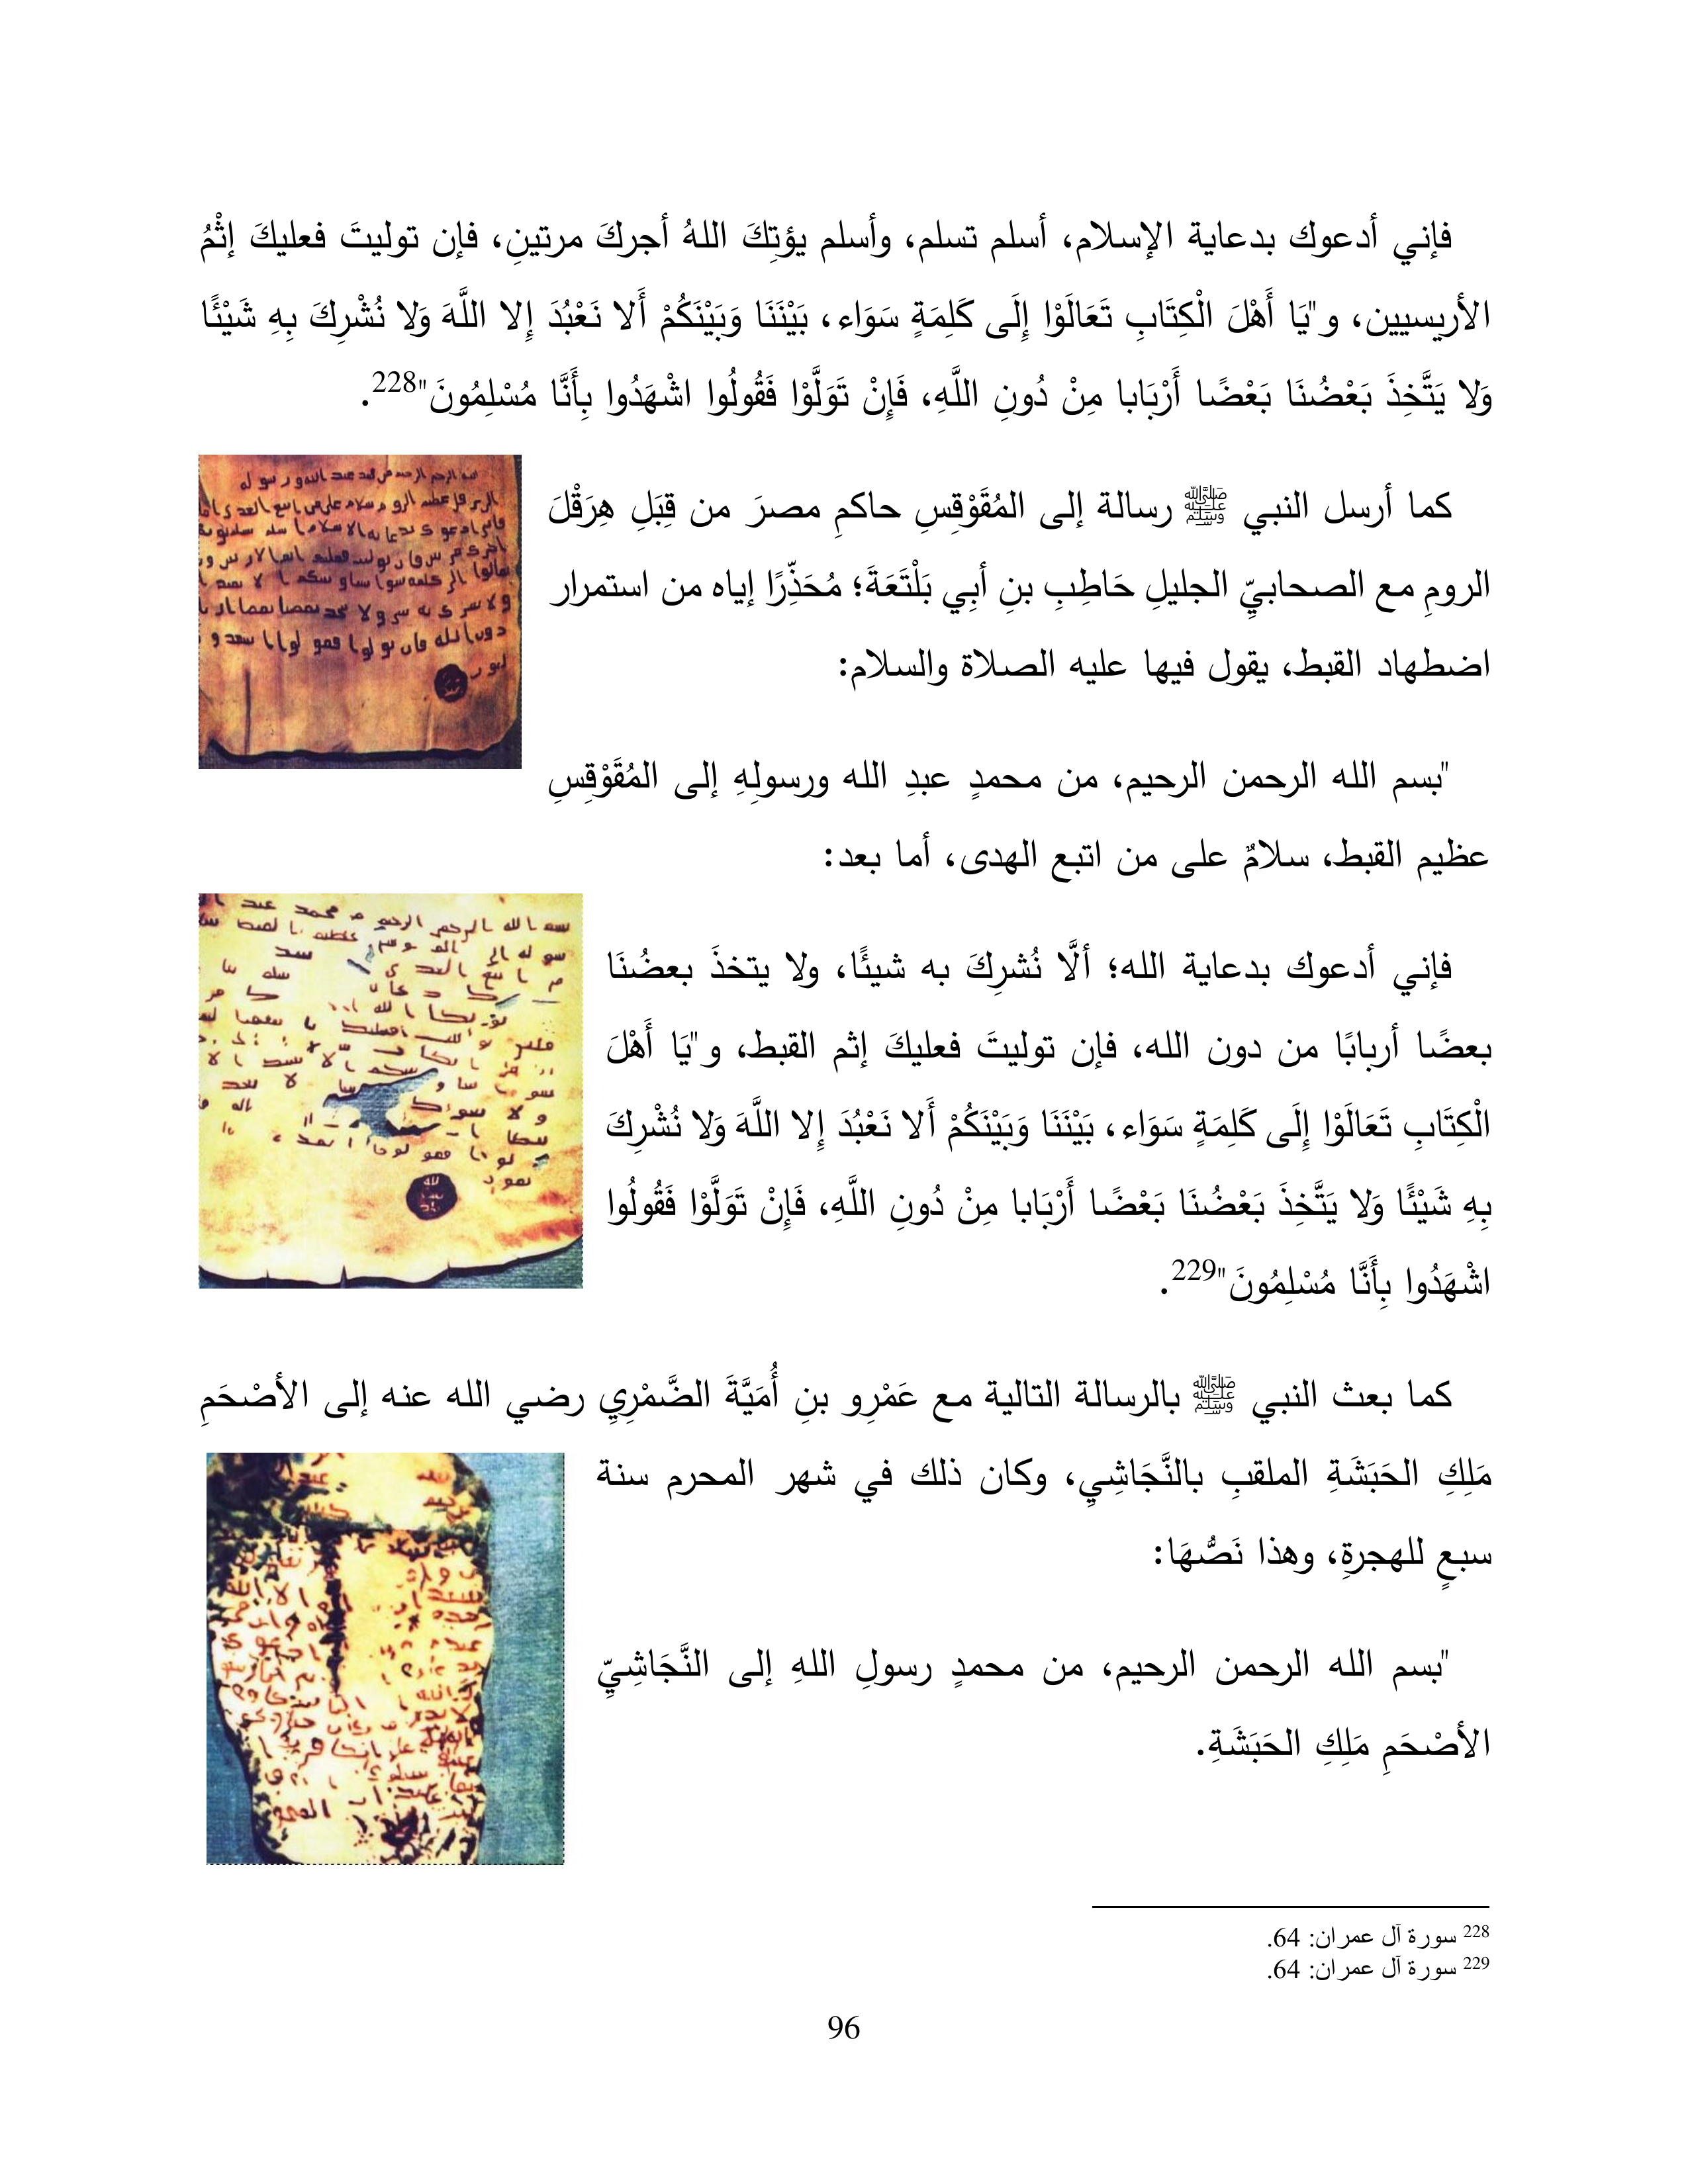 فإني أدعوك بدعاية الإسلام، أسلم تسلم، وأسلم يؤتِكَ اللهُ أجركَ مرتينِ، فإن توليتَ فعليكَ إثْمُ
الأريسيين، و"يَا أَهْلَ الْكِتَابِ تَعَالَوْا إِلَى كَلِمَةٍ سَوَاء، بَيْنَنَا وَبَيْنَكُمْ أَلا نَعْبُدَ إِلا اللَّهَ وَلا نُشْرِكَ بِهِ شَيْئًا
وَلا يَتَّخِذَ بَعْضُنَا بَعْضًا أَرْبَابا مِنْ دُونِ اللَّهِ، فَإِنْ تَوَلَّوْا فَقُولُوا اشْهَدُوا بِأَنَّا مُسْلِمُونَ"228.
كما أرسل النبي ﷺ رسالة إلى المُقَوْقِسِ حاكمِ مصرَ من قِبَلِ هِرَقْلَ
الرومِ مع الصحابيِّ الجليلِ حَاطِبِ بنِ أبِي بَلْتَعَةَ؛ مُحَذِّرًا إياه من استمرار
اضطهاد القبط، يقول فيها عليه الصلاة والسلام:
"بسم الله الرحمن الرحيم، من محمدٍ عبدِ الله ورسولِهِ إلى المُقَوْقِسِ
عظيم القبط، سلامٌ على من اتبع الهدى، أما بعد:
فإني أدعوك بدعاية الله؛ ألَّا نُشرِكَ به شيئًا، ولا يتخذَ بعضُنَا
بعضًا أربابًا من دون الله، فإن توليتَ فعليكَ إثم القبط، و"يَا أَهْلَ
الْكِتَابِ تَعَالَوْا إِلَى كَلِمَةٍ سَوَاء، بَيْنَنَا وَبَيْنَكُمْ أَلا نَعْبُدَ إِلا اللَّهَ وَلا نُشْرِكَ
بِهِ شَيْئًا وَلا يَتَّخِذَ بَعْضُنَا بَعْضًا أَرْبَابا مِنْ دُونِ اللَّهِ، فَإِنْ تَوَلَّوْا فَقُولُوا
اشْهَدُوا بِأَنَّا مُسْلِمُونَ"229.
كما بعث النبي ﷺ بالرسالة التالية مع عَمْرِو بنِ أُمَيَّةَ الضَّمْرِيِ رضي الله عنه إلى الأصْحَمِ
مَلِكِ الحَبَشَةِ الملقبِ بالنَّجَاشِيِ، وكان ذلك في شهر المحرم سنة
سبعٍ للهجرةِ، وهذا نَصُّهَا:
"بسم الله الرحمن الرحيم، من محمدٍ رسولِ اللهِ إلى النَّجَاشِيِّ
الأصْحَمِ مَلِكِ الحَبَشَةِ.
228 سورة آل عمران: 64.
229 سورة آل عمران: 64.
96